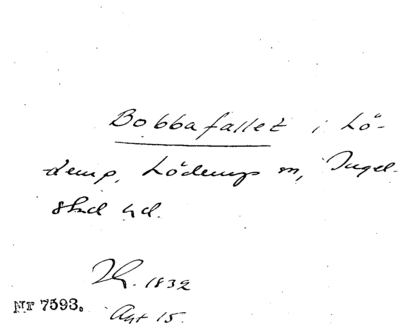 Bobbafallet i Lö-
derup, Löderups sn, Ingel-
stad hd.
1832
Akt 15.
Nr 7593.